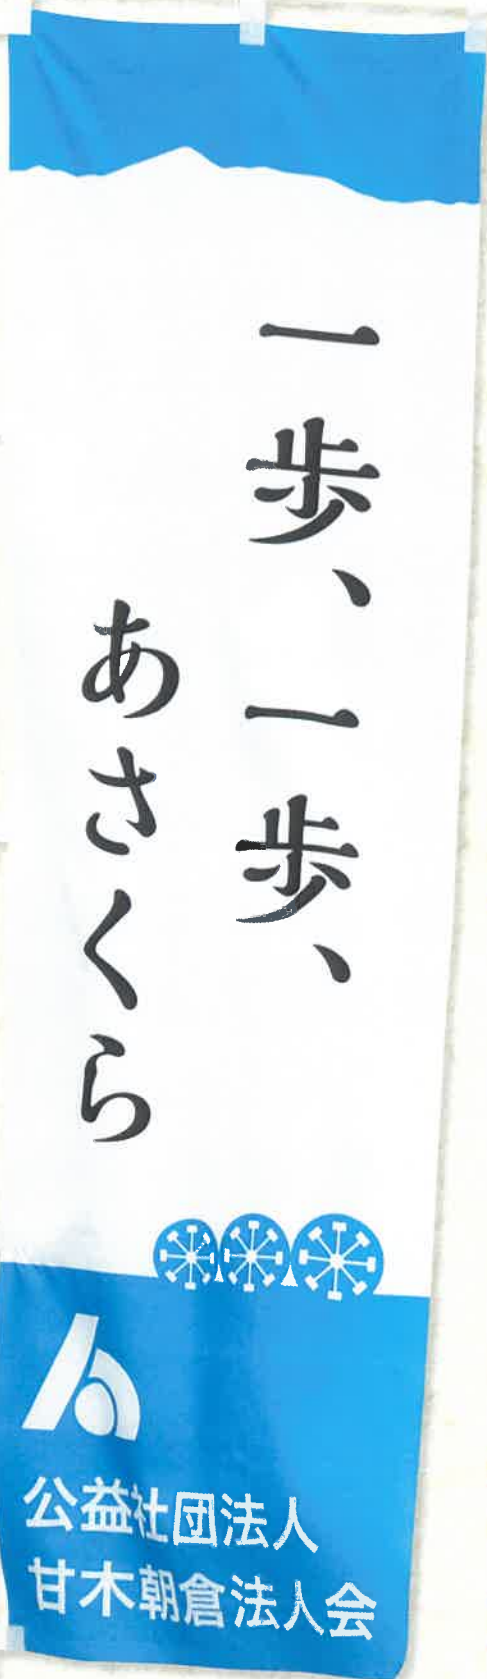 一歩、一歩、
あさくら
公益社団法人
甘木朝倉法人会